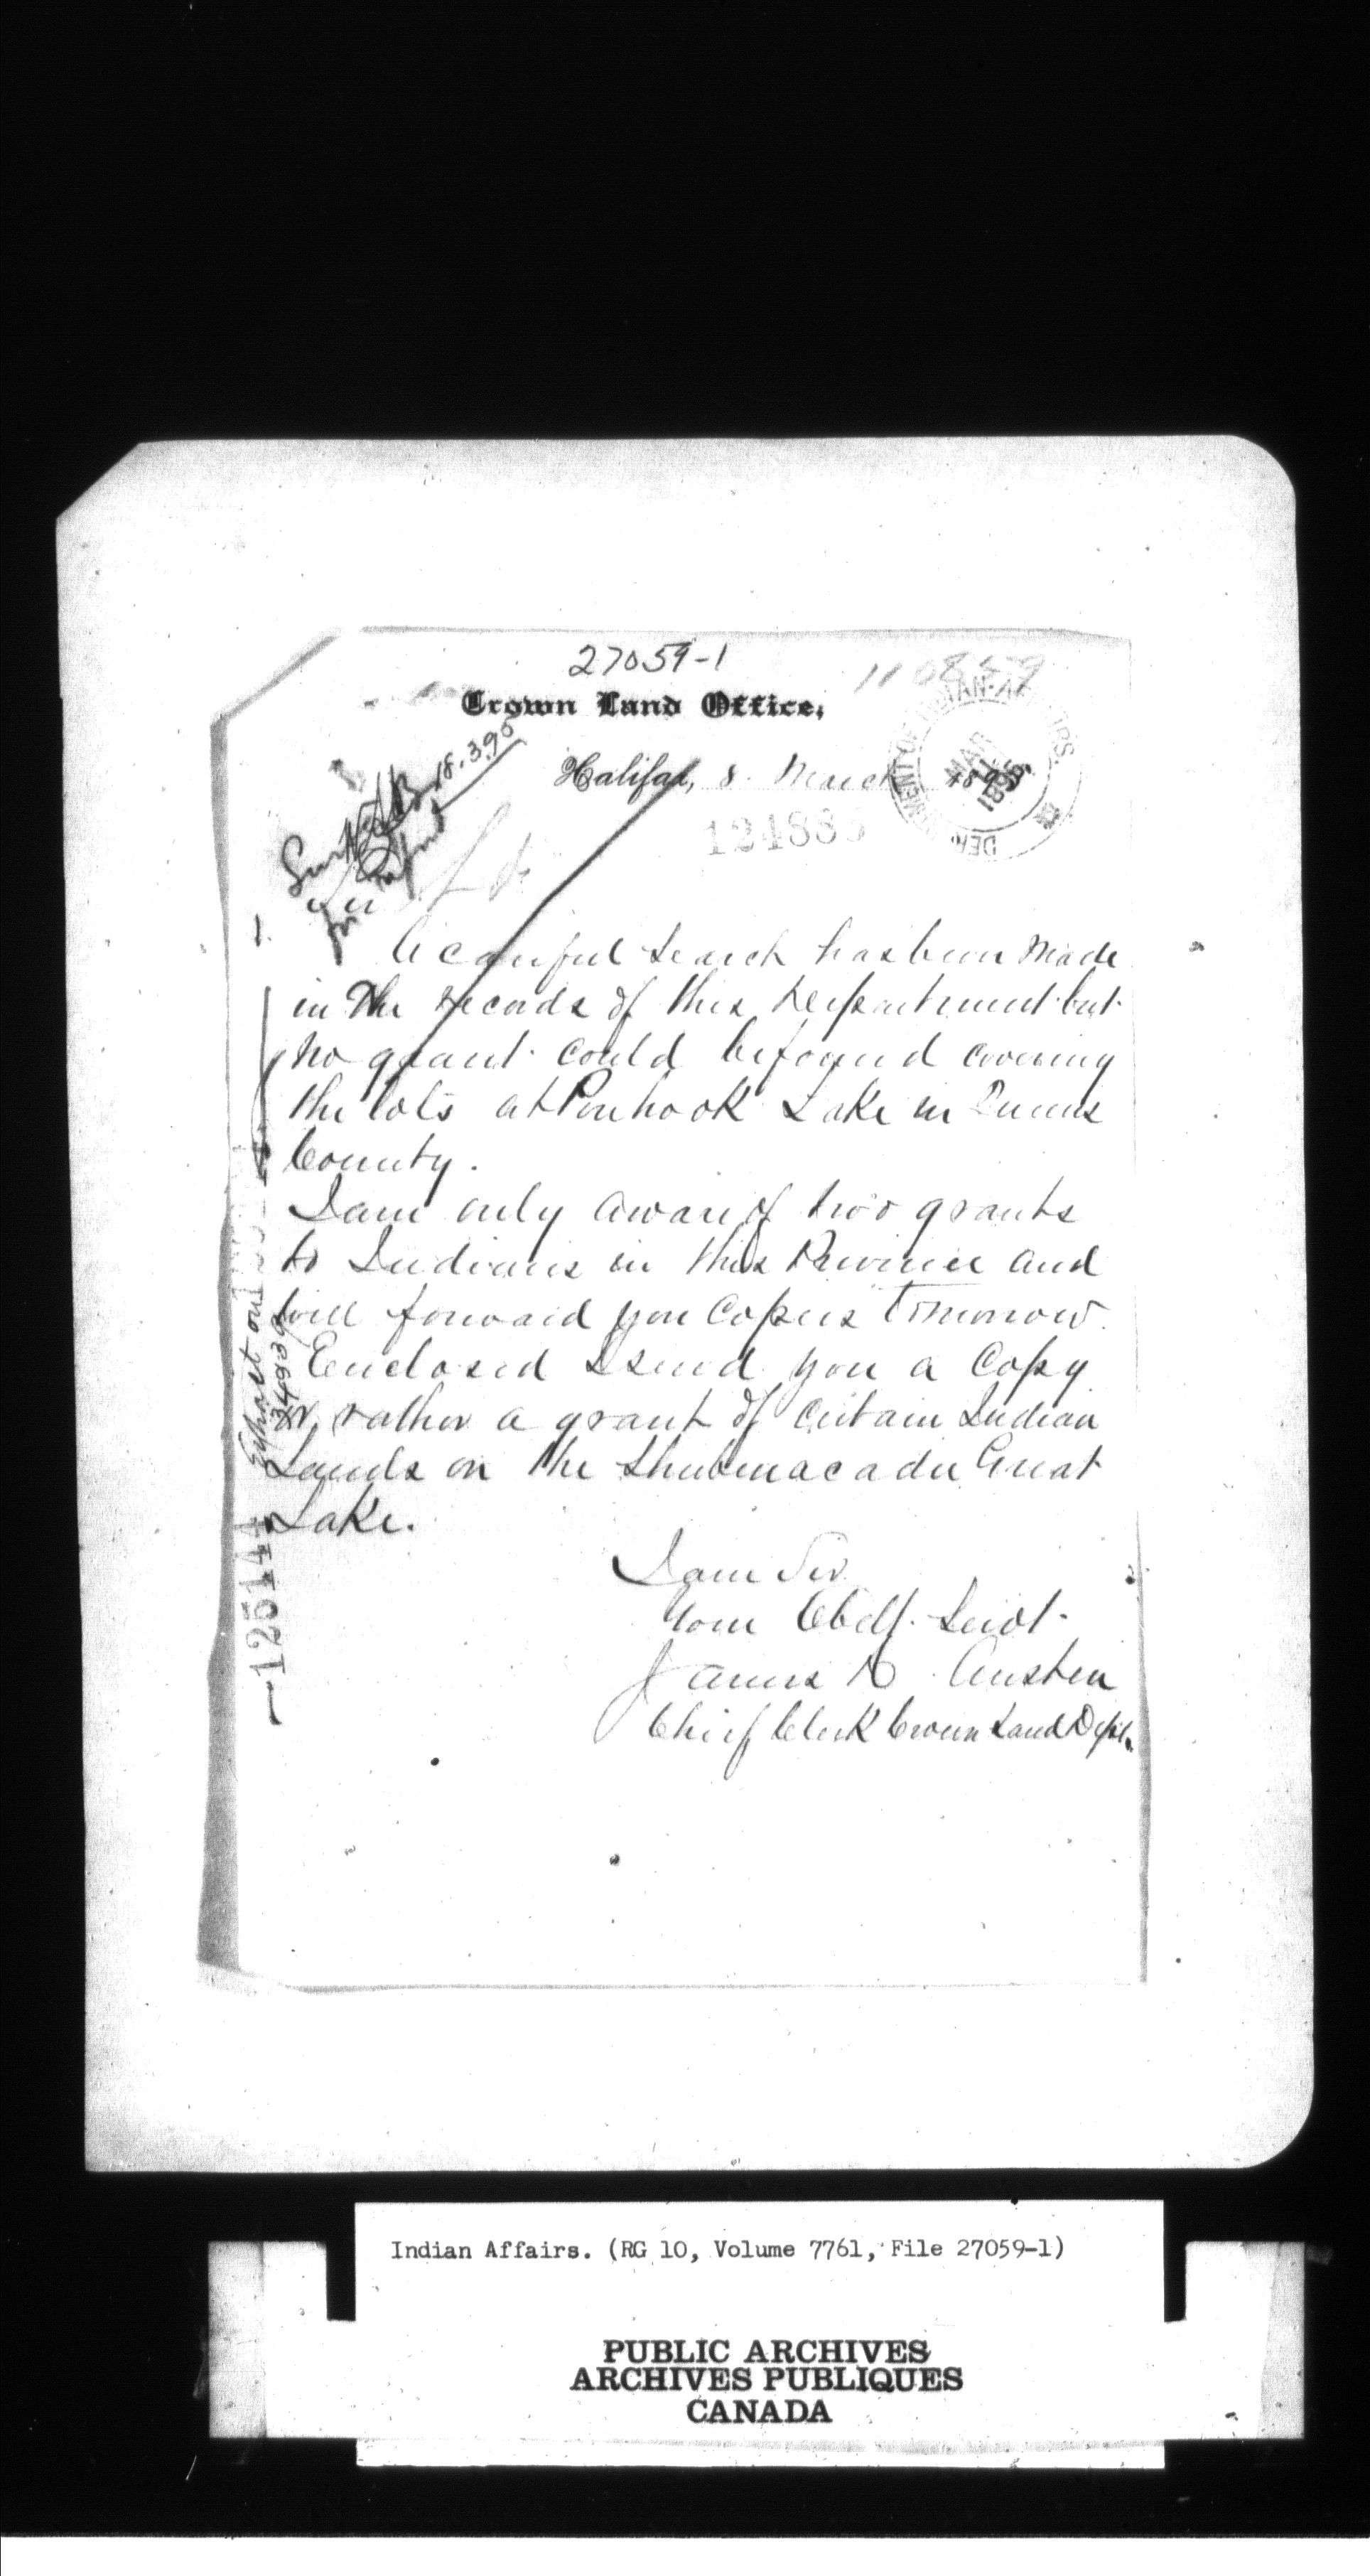 27059-1
110859
Crown Land Office,
Halifax, 8. March 1895
DEPARTMENT OF INDIAN AFFAIRS.
MAR
1895
124885
18.3.95
Sir
A careful search has been made
in the records of this Department but
no grant could be found covering
the lots at Ponhook Lake in Queens
County.
I am only aware of two grants
to Indians in this Province and
will forward you Copies tomorrow.
Enclosed I send you a Copy
or rather a grant of certain Indian
Lands on the Shubenacadie Great
Lake.
I am Sir
Your Obdt. Servt.
James H. Austen
Chief Clerk Crown Land Dept.
Extract on
34939
125144
Indian Affairs. (RG 10, Volume 7761, File 27059-1)
PUBLIC ARCHIVES
ARCHIVES PUBLIQUES
CANADA